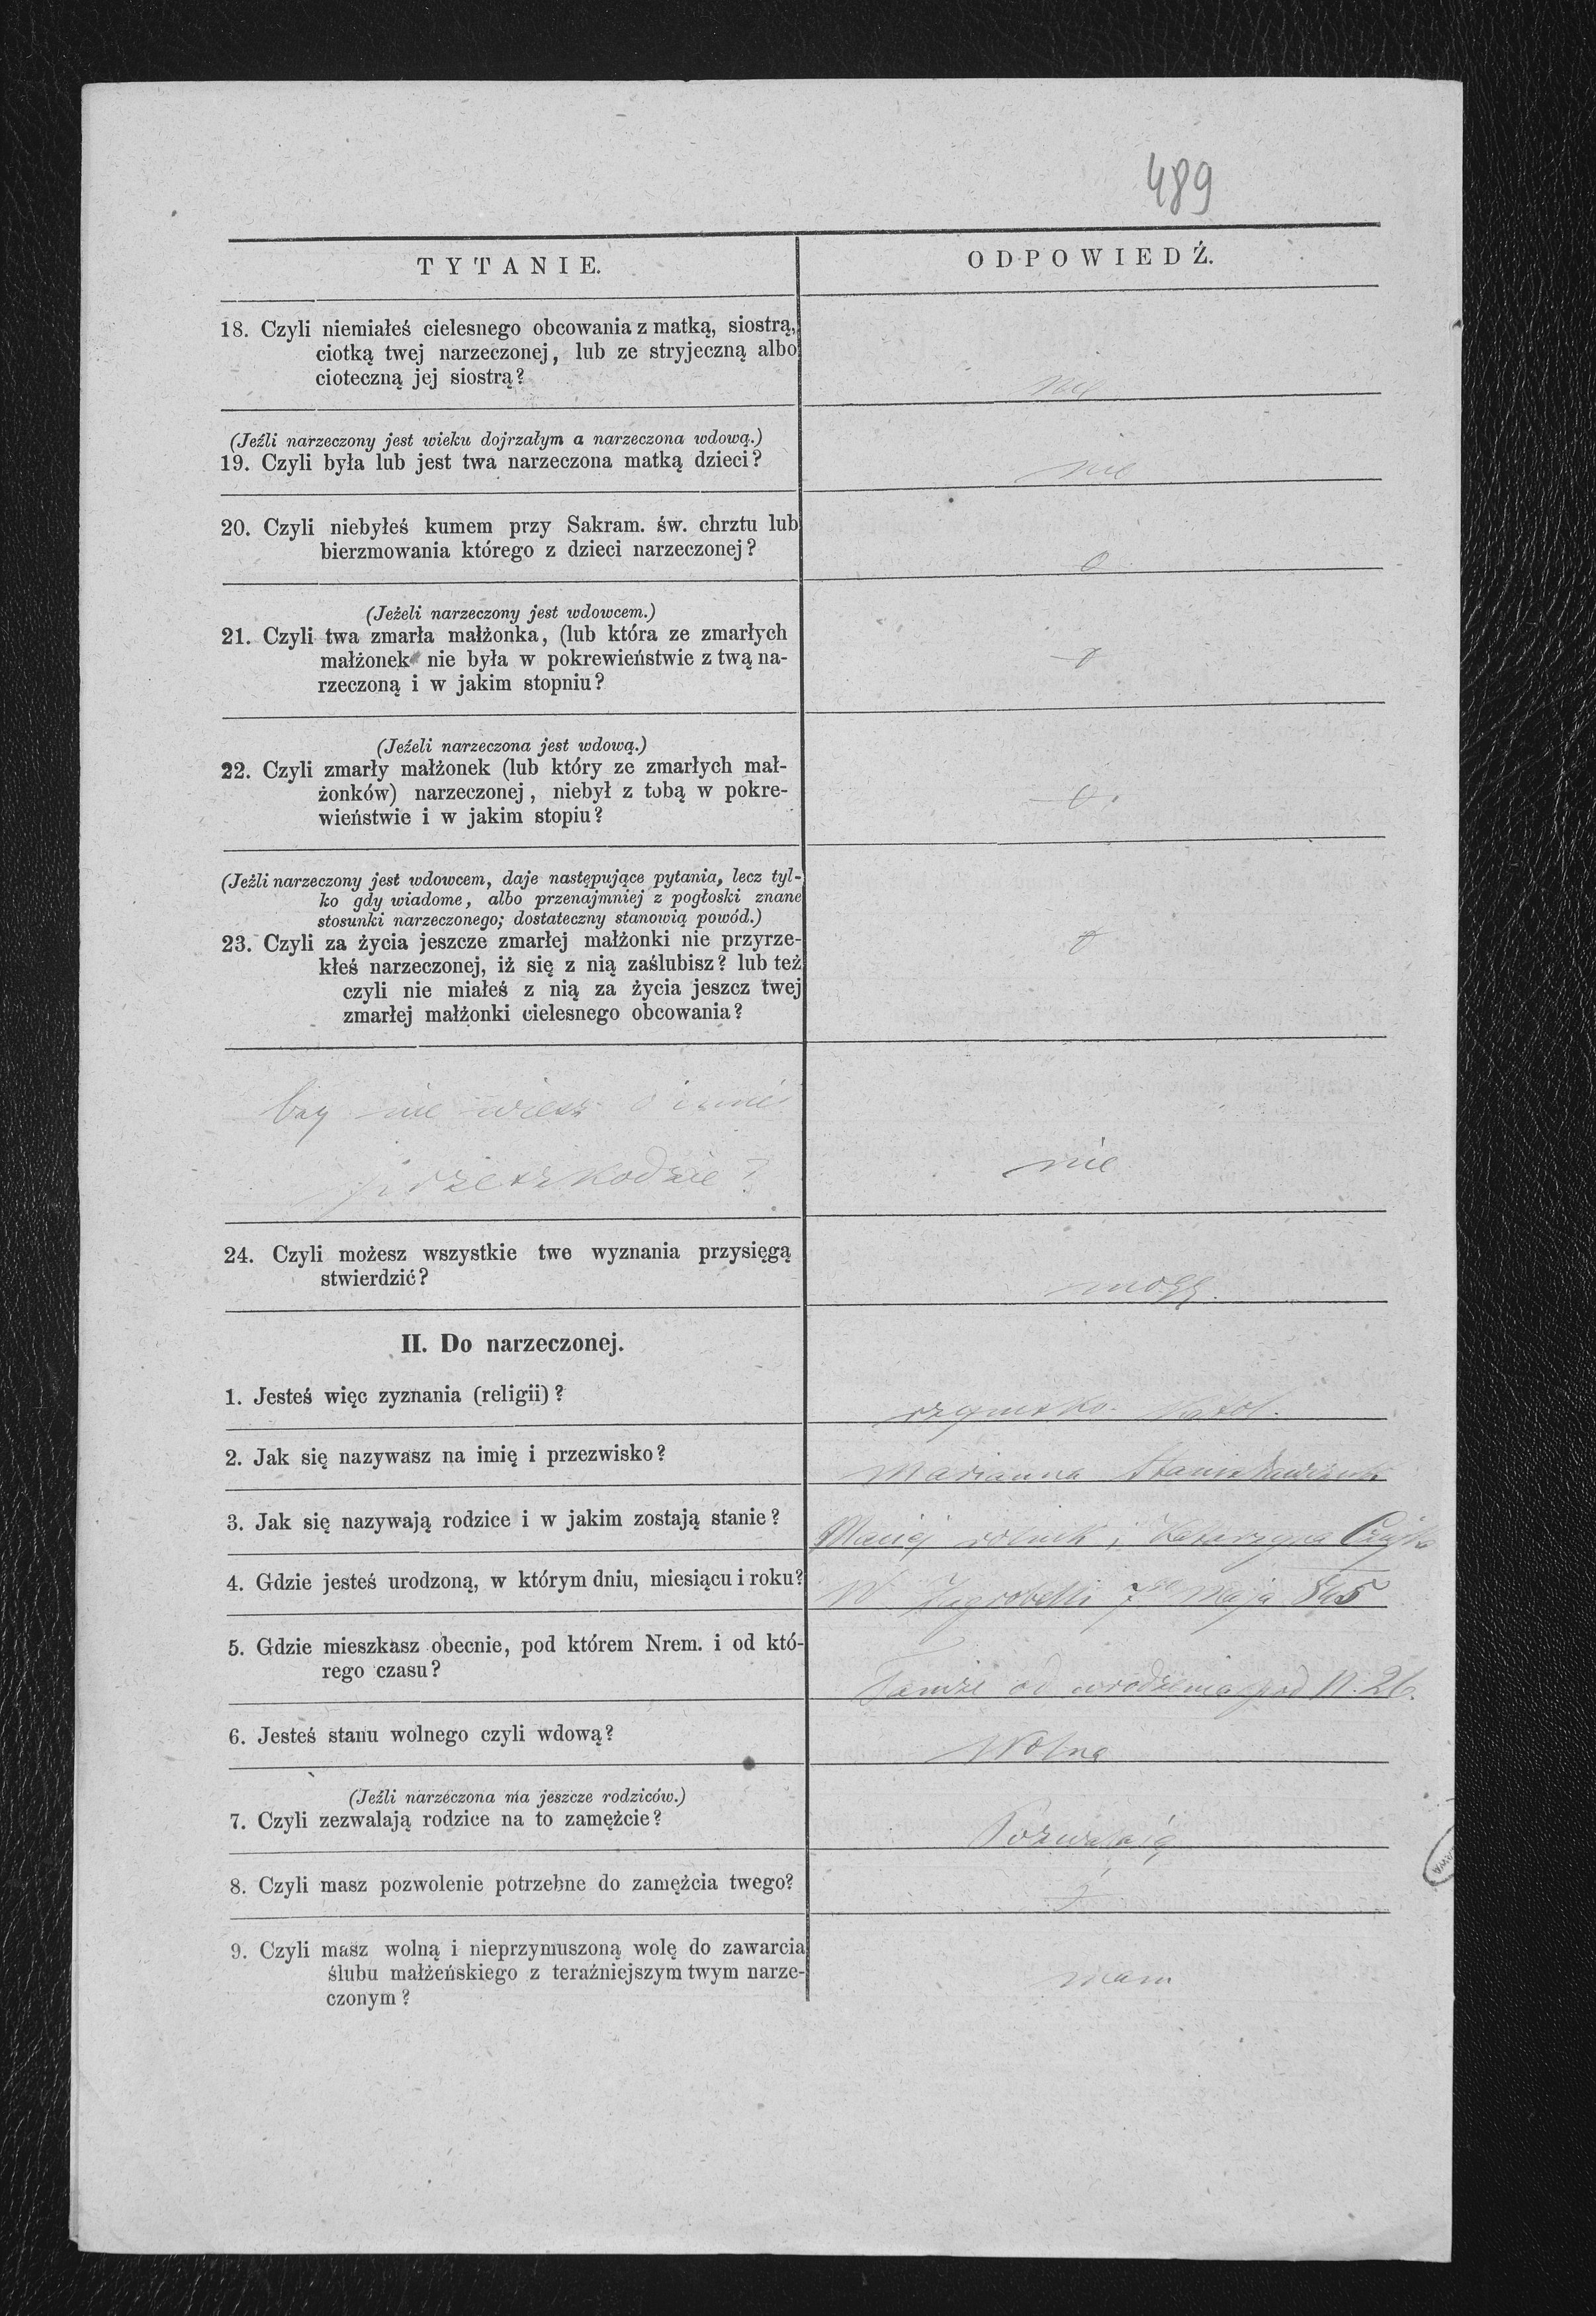 489
TYTANIE.
ODPOWIEDŹ.
18. Czyli niemiałeś cielesnego obcowania z matką, siostrą,
ciotką twej narzeczonej, lub ze stryjeczną albo
cioteczną jej siostrą?
nie
(Jeźli narzeczony jest wieku dojrzałym a narzeczona wdową.)
19. Czyli była lub jest twa narzeczona matką dzieci?
nie
20. Czyli niebyłeś kumem przy Sakram. św. chrztu lub
bierzmowania którego z dzieci narzeczonej?
0
(Jeżeli narzeczony jest wdowcem.)
21. Czyli twa zmarła małżonka, (lub która ze zmarłych
małżonek nie była w pokrewieństwie z twą na-
rzeczoną i w jakim stopniu?
0
(Jeżeli narzeczona jest wdową.)
22. Czyli zmarły małżonek (lub który ze zmarłych mał-
żonków) narzeczonej, niebył z tobą w pokre-
wieństwie i w jakim stopiu?
0
(Jeźli narzeczony jest wdowcem, daje następujące pytania, lecz tyl-
ko gdy wiadome, albo przenajmniej z pogłoski znane
stosunki narzeczonego; dostateczny stanowią powód.)
23. Czyli za życia jeszcze zmarłej małżonki nie przyrze-
kłeś narzeczonej, iż się z nią zaślubisz? lub też
czyli nie miałeś z nią za życia jeszcz twej
zmarłej małżonki cielesnego obcowania?
0
nie wiesz o
przeszkodzie?
nie
24. Czyli możesz wszystkie twe wyznania przysięgą
stwierdzić?
mogę.
II. Do narzeczonej.
1. Jesteś więc zyznania (religii)?
rzymsko-
2. Jak się nazywasz na imię i przezwisko?
Marianna
3. Jak się nazywają rodzice i w jakim zostają stanie?
Maciej rolnik i Katarzyna
4. Gdzie jesteś urodzoną, w którym dniu, miesiącu i roku?
W maja 845
5. Gdzie mieszkasz obecnie, pod którem Nrem. i od któ-
rego czasu?
Tamże od urodzenia pod N. 26.
6. Jesteś stanu wolnego czyli wdową?
Wolna
(Jeźli narzeczona ma jeszcze rodziców.)
7. Czyli zezwalają rodzice na to zamężcie?
8. Czyli masz pozwolenie potrzebne do zamężcia twego?
9. Czyli masz wolną i nieprzymuszoną wolę do zawarcia
ślubu małżeńskiego z teraźniejszym twym narze-
czonym?
mam